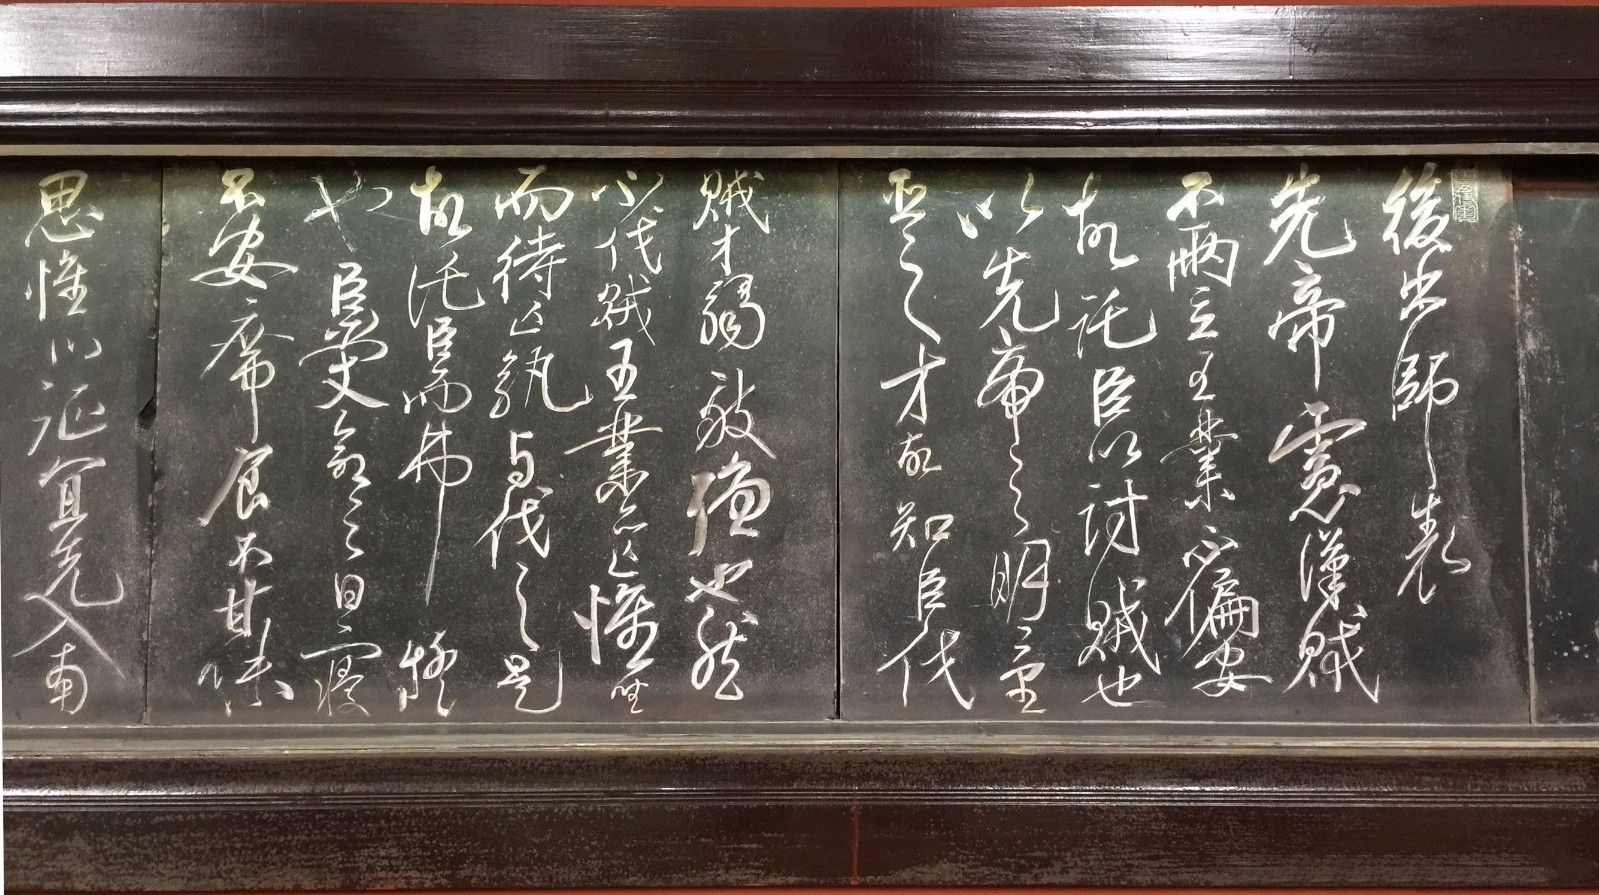 後出師表
先帝慮漢賊
不兩立王業不偏安
故託臣以討賊也
以先帝之明量
臣之才故知臣伐
賊才弱敵強也然
不伐賊王業亦亡惟坐
而待亡孰與伐之是
故託臣而弗疑
也臣受命之日寢
不安席食不甘味
思惟北征宜先入南